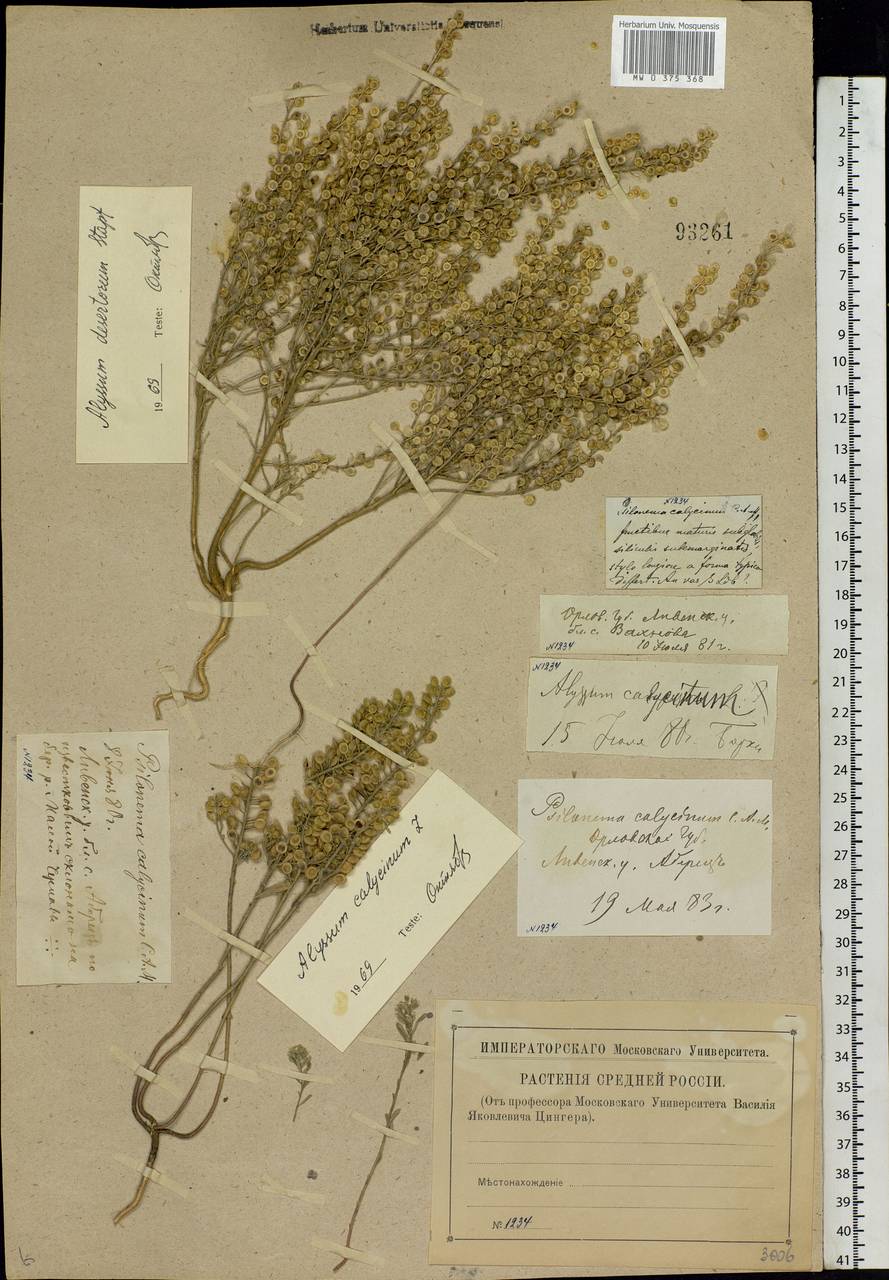 Herbarium Universitatis Mosquensis
Herbarium Univ. Mosquensis
MW 0 375 368
93261
Alyssum desertorum Stapf
1969 Teste:
№1234
Psilonema calycinum C.A.M.
fructibus maturis
siliculis submarginatis,
stylo longiore a forma typica
differt. An var β Ldb?
Орлов. Губ. Ливенск. у.
бл. с.
10 Июля 81 г.
№1234
№1234
Alyssum calycinum L.
15 Июля 80 г.
Psilonema calycinum C.A.M.
Орловская Губ.
Ливенск. у.
19 Мая 83 г.
№1234
Psilonema calycinum C.A.M.
8 80 г.
Ливенск. у. бл. с. по
известковым склонам на
бер. р.
№1234
Alyssum calycinum L
1969 Teste:
ИМПЕРАТОРСКАГО Московскаго Университета.
РАСТЕНІЯ СРЕДНЕЙ РОССІИ.
(Отъ профессора Московскаго Университета Василія
Яковлевича Цингера).
Мѣстонахожденіе
№ 1234
3006
1
2
3
4
5
6
7
8
9
10
11
12
13
14
15
16
17
18
19
20
21
22
23
24
25
26
27
28
29
30
31
32
33
34
35
36
37
38
39
40
41